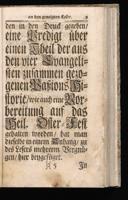 an den geneigten Leser.
den in den Druck gegeben/
eine Predigt über
einen Theil der aus
den vier Evangeli-
sten zusammen gezo-
genen Passions Hi-
storie/ wie auch eine Vor-
bereitung auf das
Heil. Oster-Fest
gehalten worden/ hat man
dieselbe in einem Anhang/ zu
des Lesers mehreren Vergnü-
gen/ hier beygefüget.
In